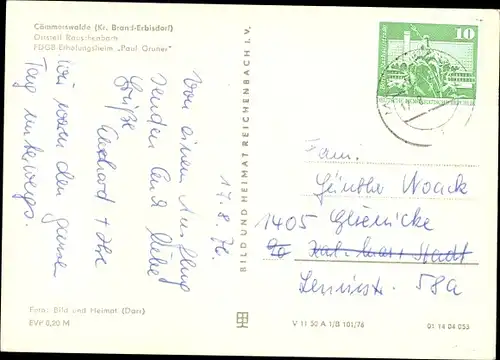 Cämmerswalde (Kr. Brand-Erbisdorf)
Ortsteil Rauschenbach
FDGB-Erholungsheim „Paul Gruner"
17. 8. 76.
Von einem Ausflug
senden Euch liebe
Grüße Gerhard +
Wir waren den ganzen
Tag unterwegs.
Foto: Bild und Heimat (Darr)
EVP 0,20 M
BILD UND HEIMAT REICHENBACH I. V.
V 11 50 A 1/B 101/76
01 14 04 053
10
Fam.
Günther Noack
1405 Glienicke
Karl-Marx-Stadt
Leninstr. 58a